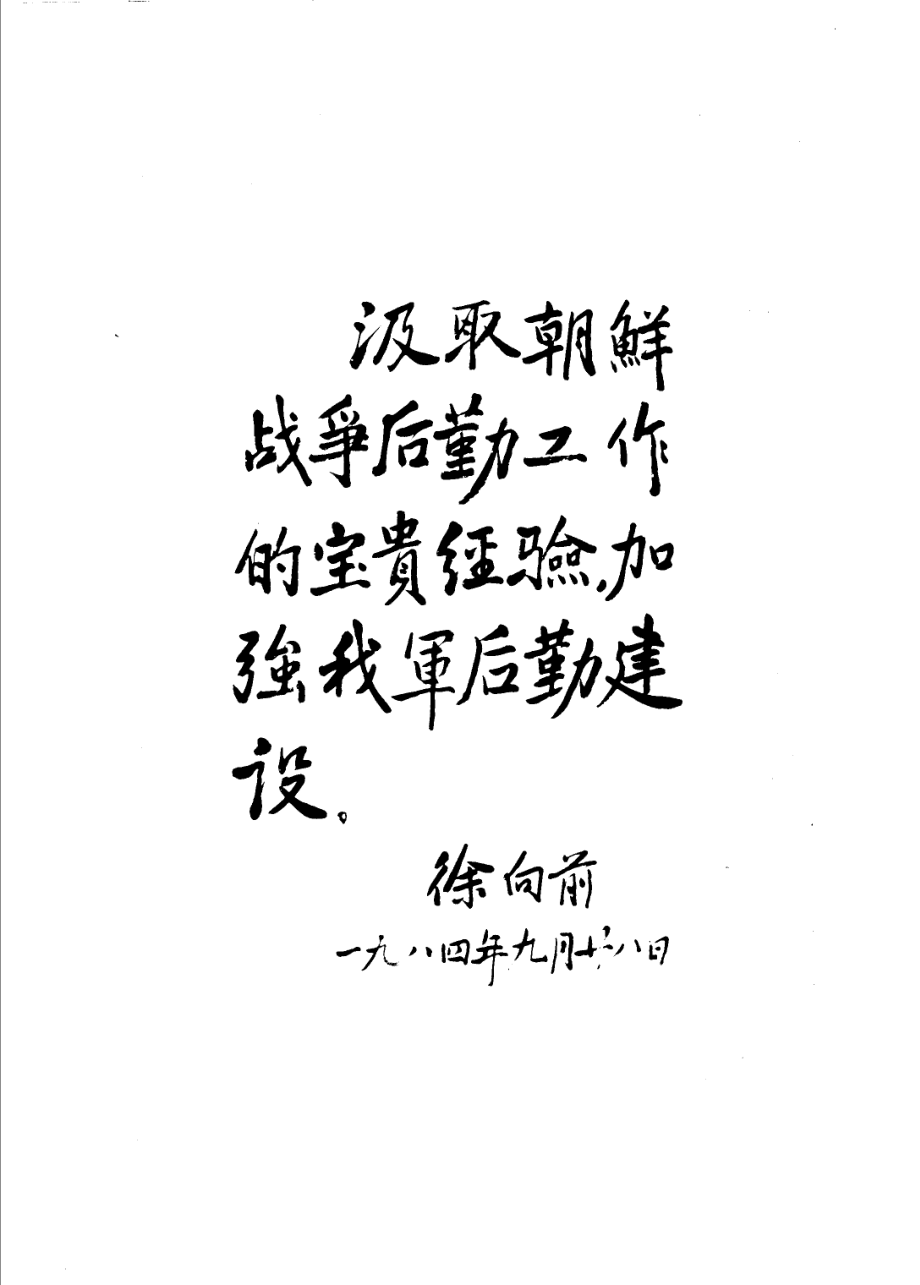 汲取朝鮮
战爭后勤工作
的宝貴經驗,加
強我軍后勤建
设。
徐向前
一九八四年九月十八日